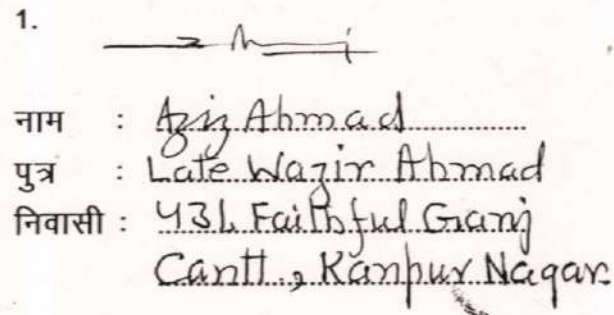 1.
नाम : Aziz Ahmad
पुत्र : Late Wazir Ahmad
निवासी : 431, Faithful Ganj
Cantt., Kanpur Nagar.